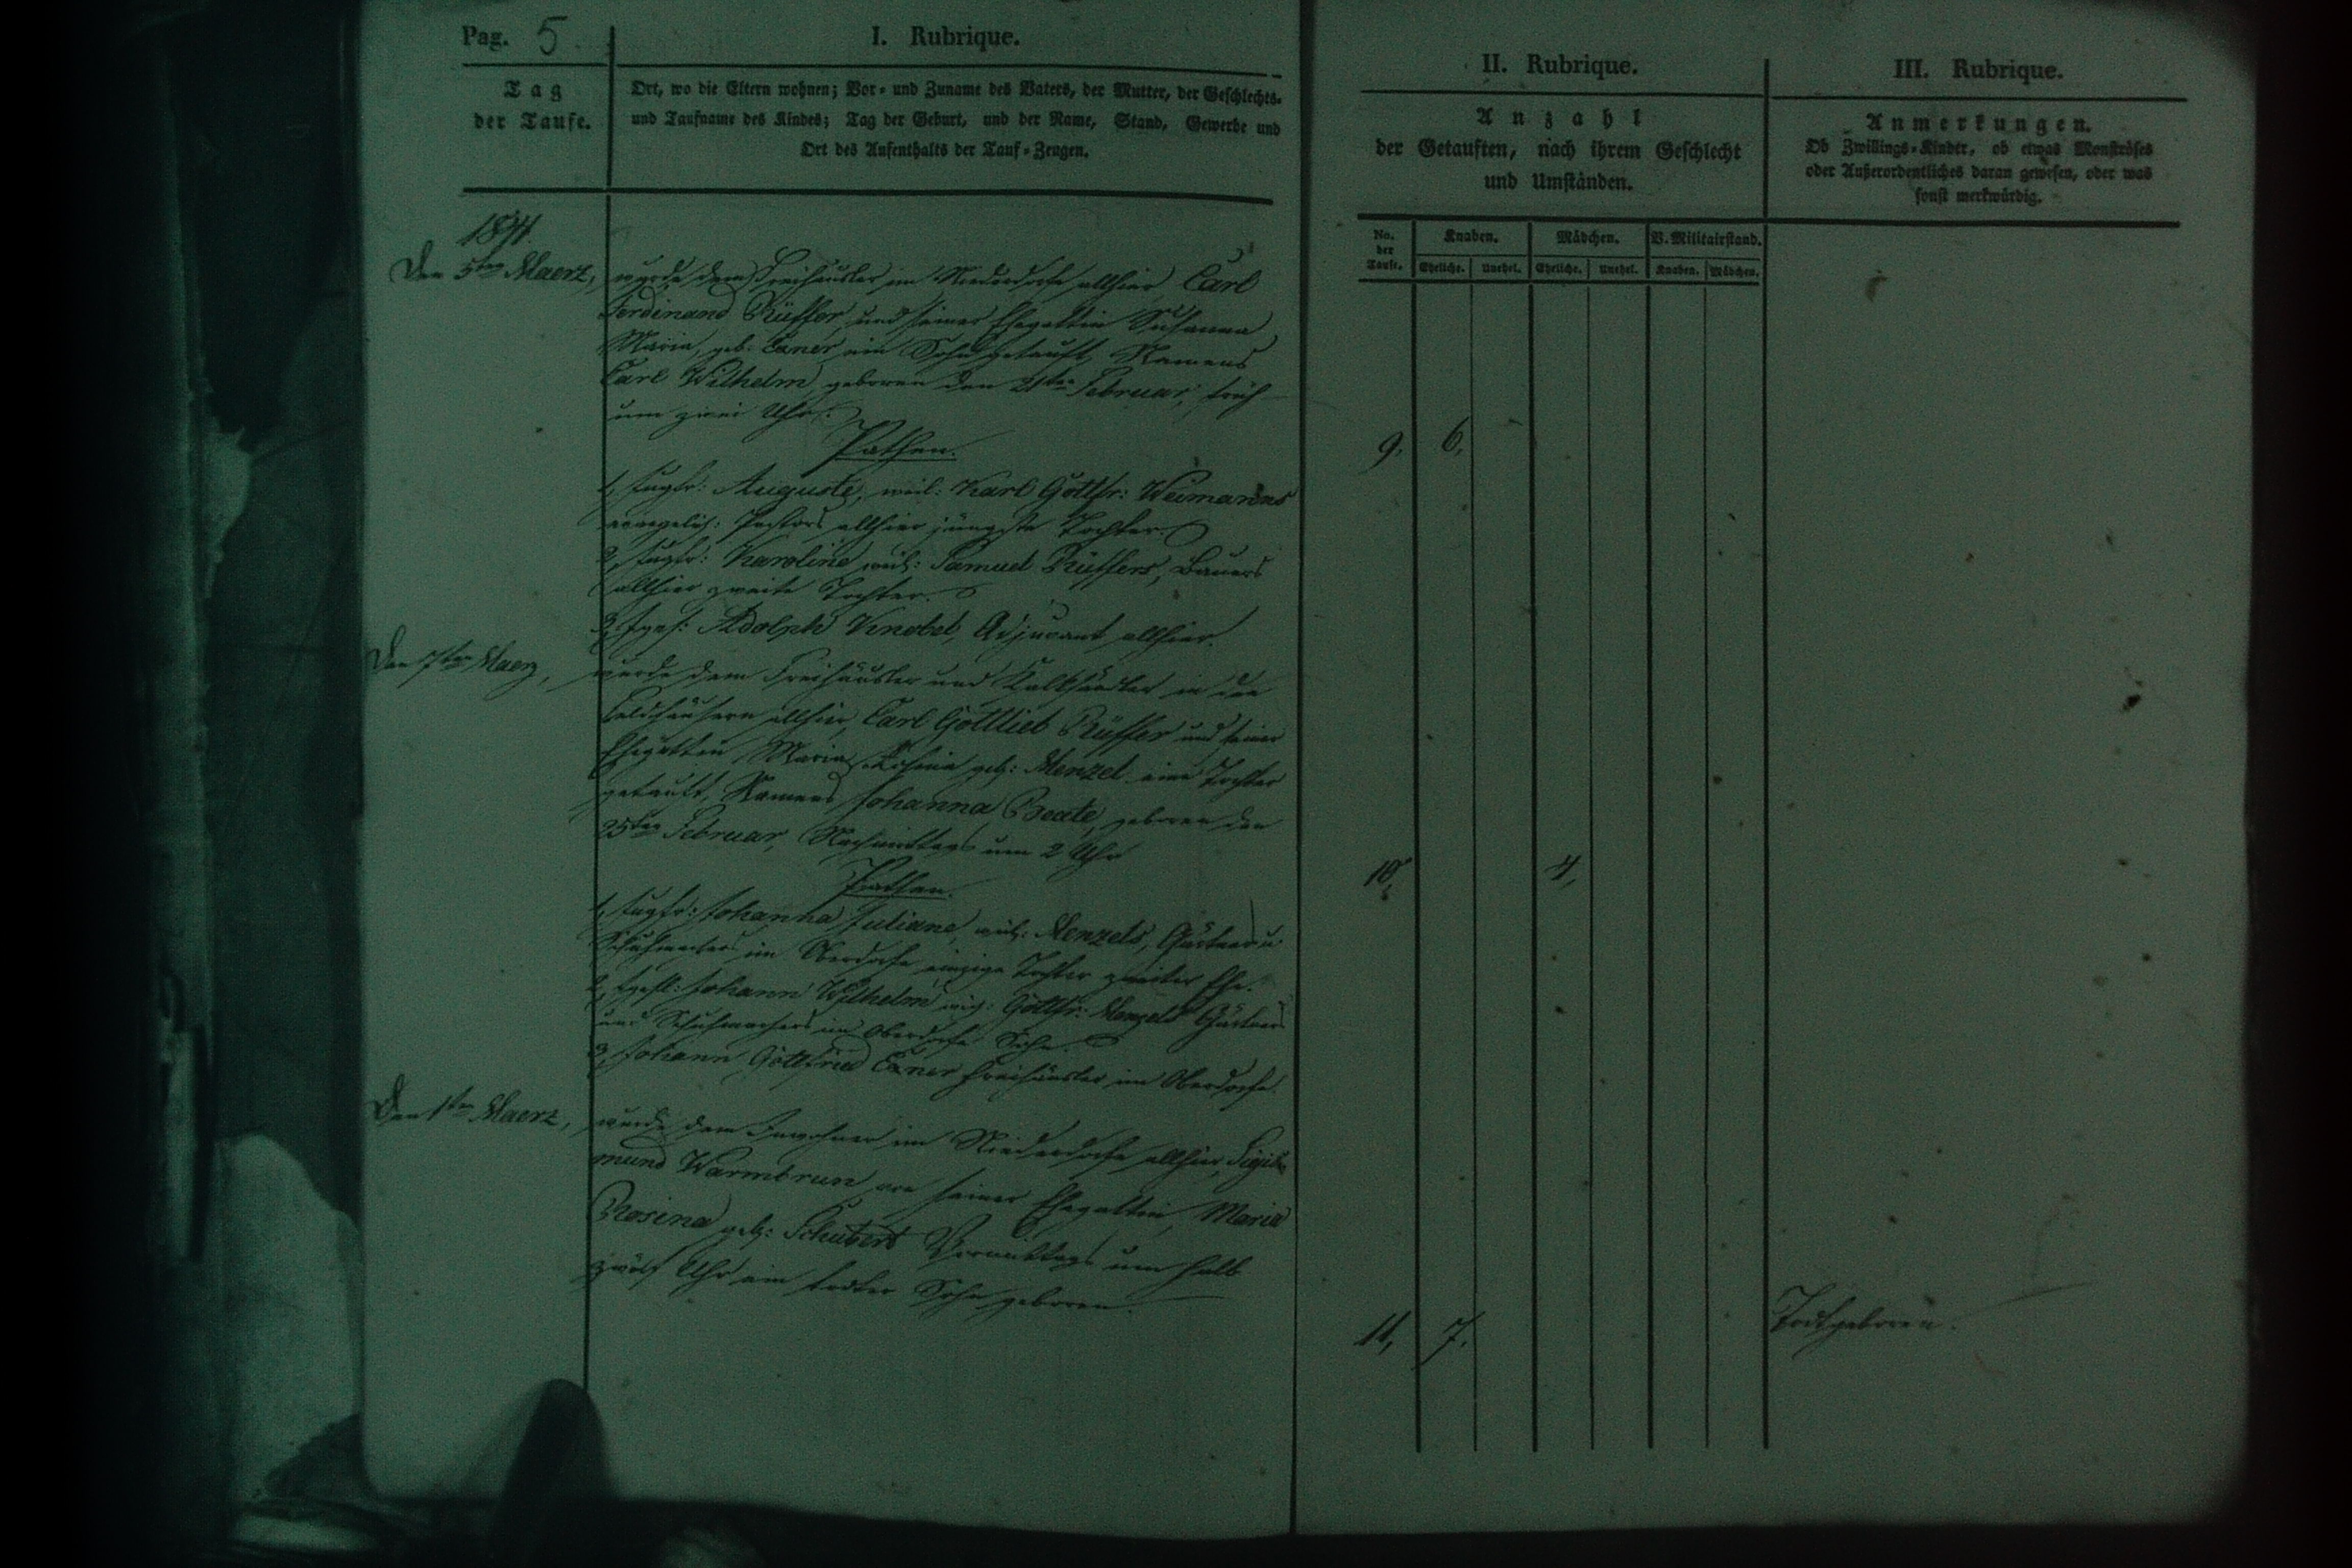 Pag. 5.
I. Rubrique.
Tag
der Taufe.
Ort, wo die Eltern wohnen; Vor- und Zuname des Vaters, der Mutter, der Geschlechts-
und Taufname des Kindes; Tag der Geburt, und der Name, Stand, Gewerbe und
Ort des Aufenthalts der Tauf-Zeugen.
II. Rubrique.
Anzahl
der Getauften, nach ihrem Geschlecht
und Umständen.
III. Rubrique.
Anmerkungen.
Ob Zwillings-Kinder, ob etwas Monströses
oder Außerordentliches daran gewesen, oder was
sonst merkwürdig.
No. der Taufe.
Knaben. Mädchen. V. Militairstand.
Eheliche. Unehel. Eheliche. Unehel. Knaben. Mädchen.
Den 5ten Maerz,
wurde dem Freihäusler im Niederdorfe allhier Carl
Ferdinand Rüffer, und seiner Ehegattin Susanna
Maria, geb. Exner ein Sohn getauft, Namens
Carl Wilhelm geboren den 21ten Februar, früh
um zwei Uhr.
9. 6.
Pathen.
1, Jugfr: Auguste, weil: Karl Gottfr:
evangelisch: Pastors allhier jüngste Tochter.
2, Jugfr: Karoline weil: Samuel Rüffers, Bauers
allhier zweite Tochter.
3, Adolph Knobel, Adjuvant allhier.
Den 7ten Maerz,
wurde dem Freihäusler und Kalkhändler in den
Feldhäusern allhier, Carl Gottlieb Rüffer und seiner
Ehegattin Maria Rosina geb: Menzel eine Tochter
getauft, Namens Johanna Beate, geboren den
25ten Februar, Nachmittags um 2 Uhr
10, 4,
Pathen.
1, Jugfr: Johanna Juliane, weil: Menzels, Gärtner u
Schuhmachers im Oberdorfe einzige Tochter zweiter Ehe.
2, Johann Wilhelm weil: Gottfr: Menzels Gärtners
und Schuhmachers im Oberdorfe Sohn.
3, Johann Gottfried Exner Freihäusler im Oberdorfe.
Den 1ten Maerz,
wurde dem Inwohner im Niederdorfe allhier, Sigis-
mund Warmbrun von seiner Ehegattin, Maria
Rosina geb: Schubert Vormittags um halb
zwölf Uhr ein todter Sohn geboren.
11, 7.
Todtgeboren.